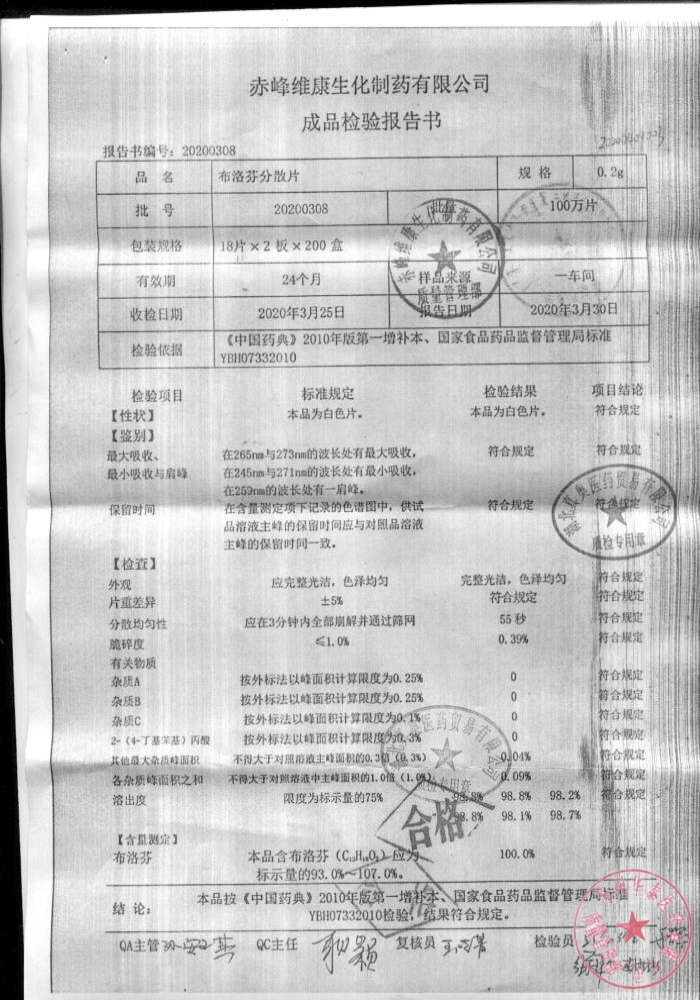 赤峰维康生化制药有限公司
成品检验报告书
报告书编号：20200308
品 名 布洛芬分散片 规 格 0.2g
批 号 20200308 批量 100万片
包装规格 18片×2 板×200 盒
有效期 24个月 样品来源 一车间
收检日期 2020年3月25日 报告日期 2020年3月30日
检验依据 《中国药典》2010年版第一增补本、国家食品药品监督管理局标准
YBH07332010
赤峰维康生化制药有限公司
质量管理部
检验项目 标准规定 检验结果 项目结论
【性状】 本品为白色片。 本品为白色片。 符合规定
【鉴别】
最大吸收、 在265nm与273nm的波长处有最大吸收， 符合规定 符合规定
最小吸收与肩峰 在245nm与271nm的波长处有最小吸收，
在259nm的波长处有一肩峰。
保留时间 在含量测定项下记录的色谱图中，供试 符合规定 符合规定
品溶液主峰的保留时间应与对照品溶液
主峰的保留时间一致。
医药贸易有限公司
质检专用章
【检查】
外观 应完整光洁，色泽均匀 完整光洁，色泽均匀 符合规定
片重差异 ±5% 符合规定 符合规定
分散均匀性 应在3分钟内全部崩解并通过筛网 55 秒 符合规定
脆碎度 ≤1.0% 0.39% 符合规定
有关物质
杂质A 按外标法以峰面积计算限度为0.25% 0 符合规定
杂质B 按外标法以峰面积计算限度为0.25% 0 符合规定
杂质C 按外标法以峰面积计算限度为0.1% 0 符合规定
2-（4-丁基苯基）丙酸 按外标法以峰面积计算限度为0.3% 0 符合规定
其他最大杂质峰面积 不得大于对照溶液主峰面积的0.3倍（0.3%） 0.04% 符合规定
各杂质峰面积之和 不得大于对照溶液中主峰面积的1.0倍（1.0%） 0.09% 符合规定
溶出度 限度为标示量的75% 98.8% 98.8% 98.2% 符合规定
98.8% 98.1% 98.7%
医药贸易有限公司
质检专用章
合格
【含量测定】
布洛芬 本品含布洛芬（C₁₃H₁₈O₂）应为 100.0% 符合规定
标示量的93.0%～107.0%。
结 论： 本品按《中国药典》2010年版第一增补本、国家食品药品监督管理局标准
YBH07332010检验，结果符合规定。
QA主管 QC主任 复核员 检验员